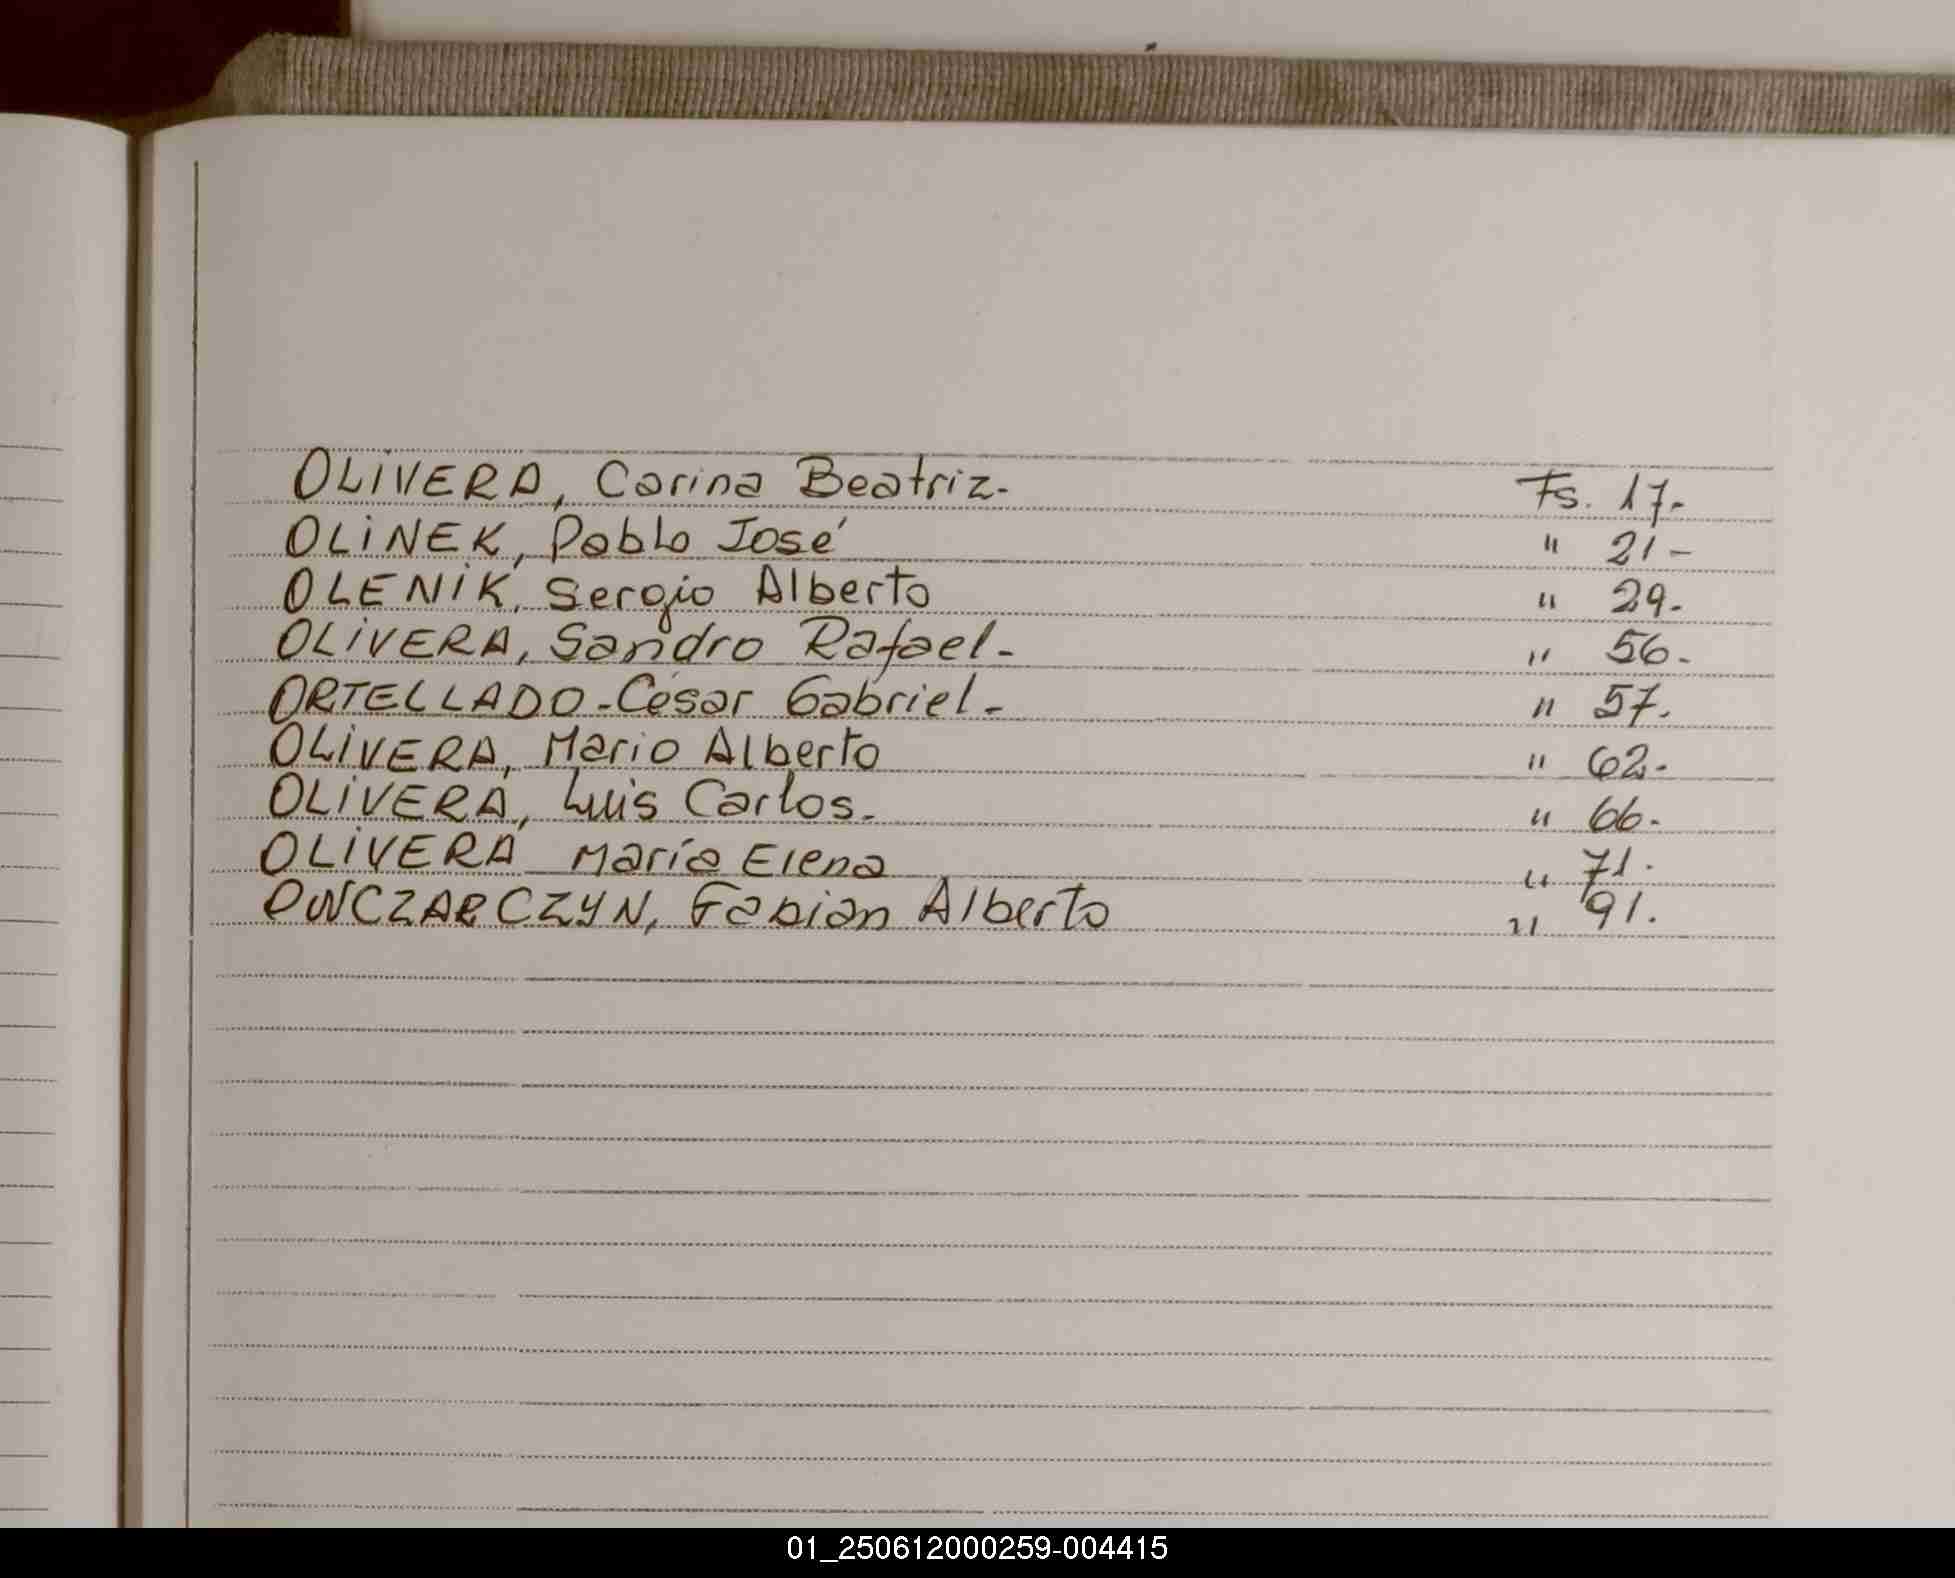 OLIVERA, Carina Beatriz.- Fs. 17.-
OLINEK, Pablo José " 21-
OLENIK, Sergio Alberto " 29.-
OLIVERA, Sandro Rafael.- " 56.-
ORTELLADO-César Gabriel.- " 57.
OLIVERA, Mario Alberto " 62.-
OLIVERA, Luis Carlos.- " 66.-
OLIVERA María Elena " 71.-
OWCZARCZYN, Fabian Alberto " 91.
01_250612000259-004415